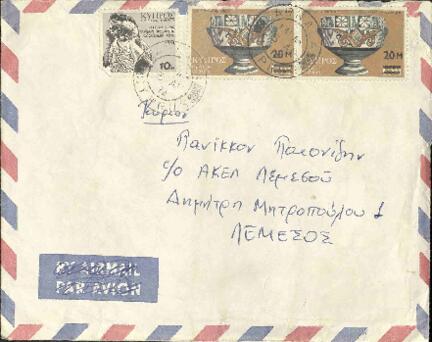 ΚΥΠΡΟΣ
10
ΚΥΠΡΟΣ
20 M
ΚΥΠΡΟΣ
20 M
Κύριον
Πανίκκον Παιονίδην
c/o ΑΚΕΛ Λεμεσού
Δημήτρη Μητροπούλου 1
ΛΕΜΕΣΟΣ
BY AIRMAIL
PAR AVION